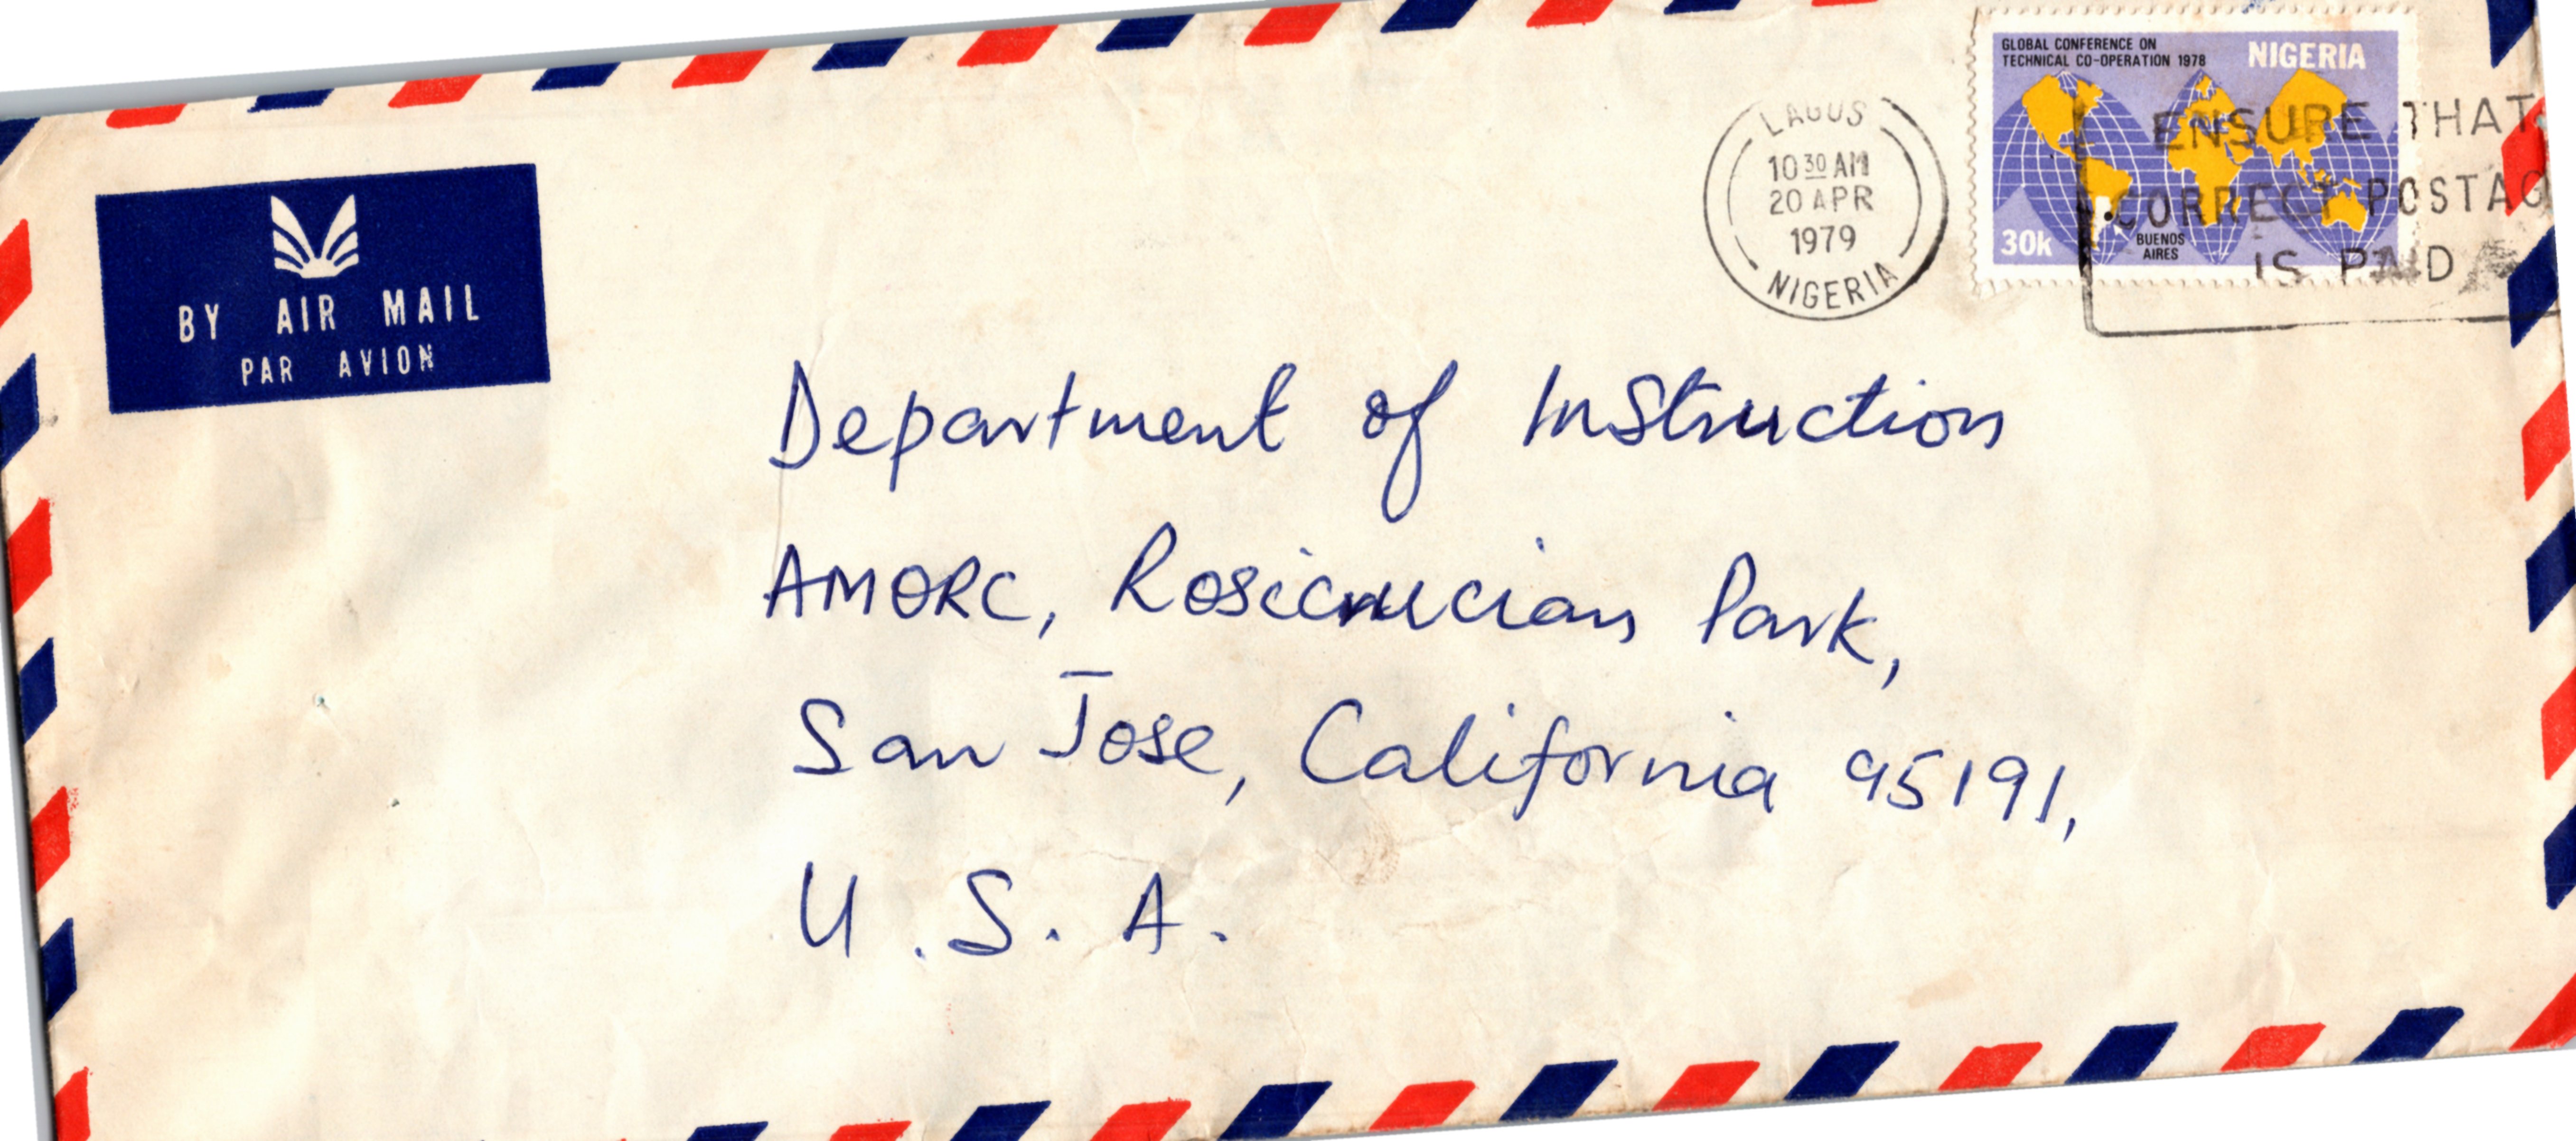 GLOBAL CONFERENCE ON
TECHNICAL CO-OPERATION 1978
NIGERIA
30k
BUENOS
AIRES
LAGOS
10 30 AM
20 APR
1979
NIGERIA
ENSURE THAT
CORRECT POSTAG
IS PAID
BY AIR MAIL
PAR AVION
Department of Instruction
AMORC, Rosicrucian Park,
San Jose, California 95191,
U.S.A.